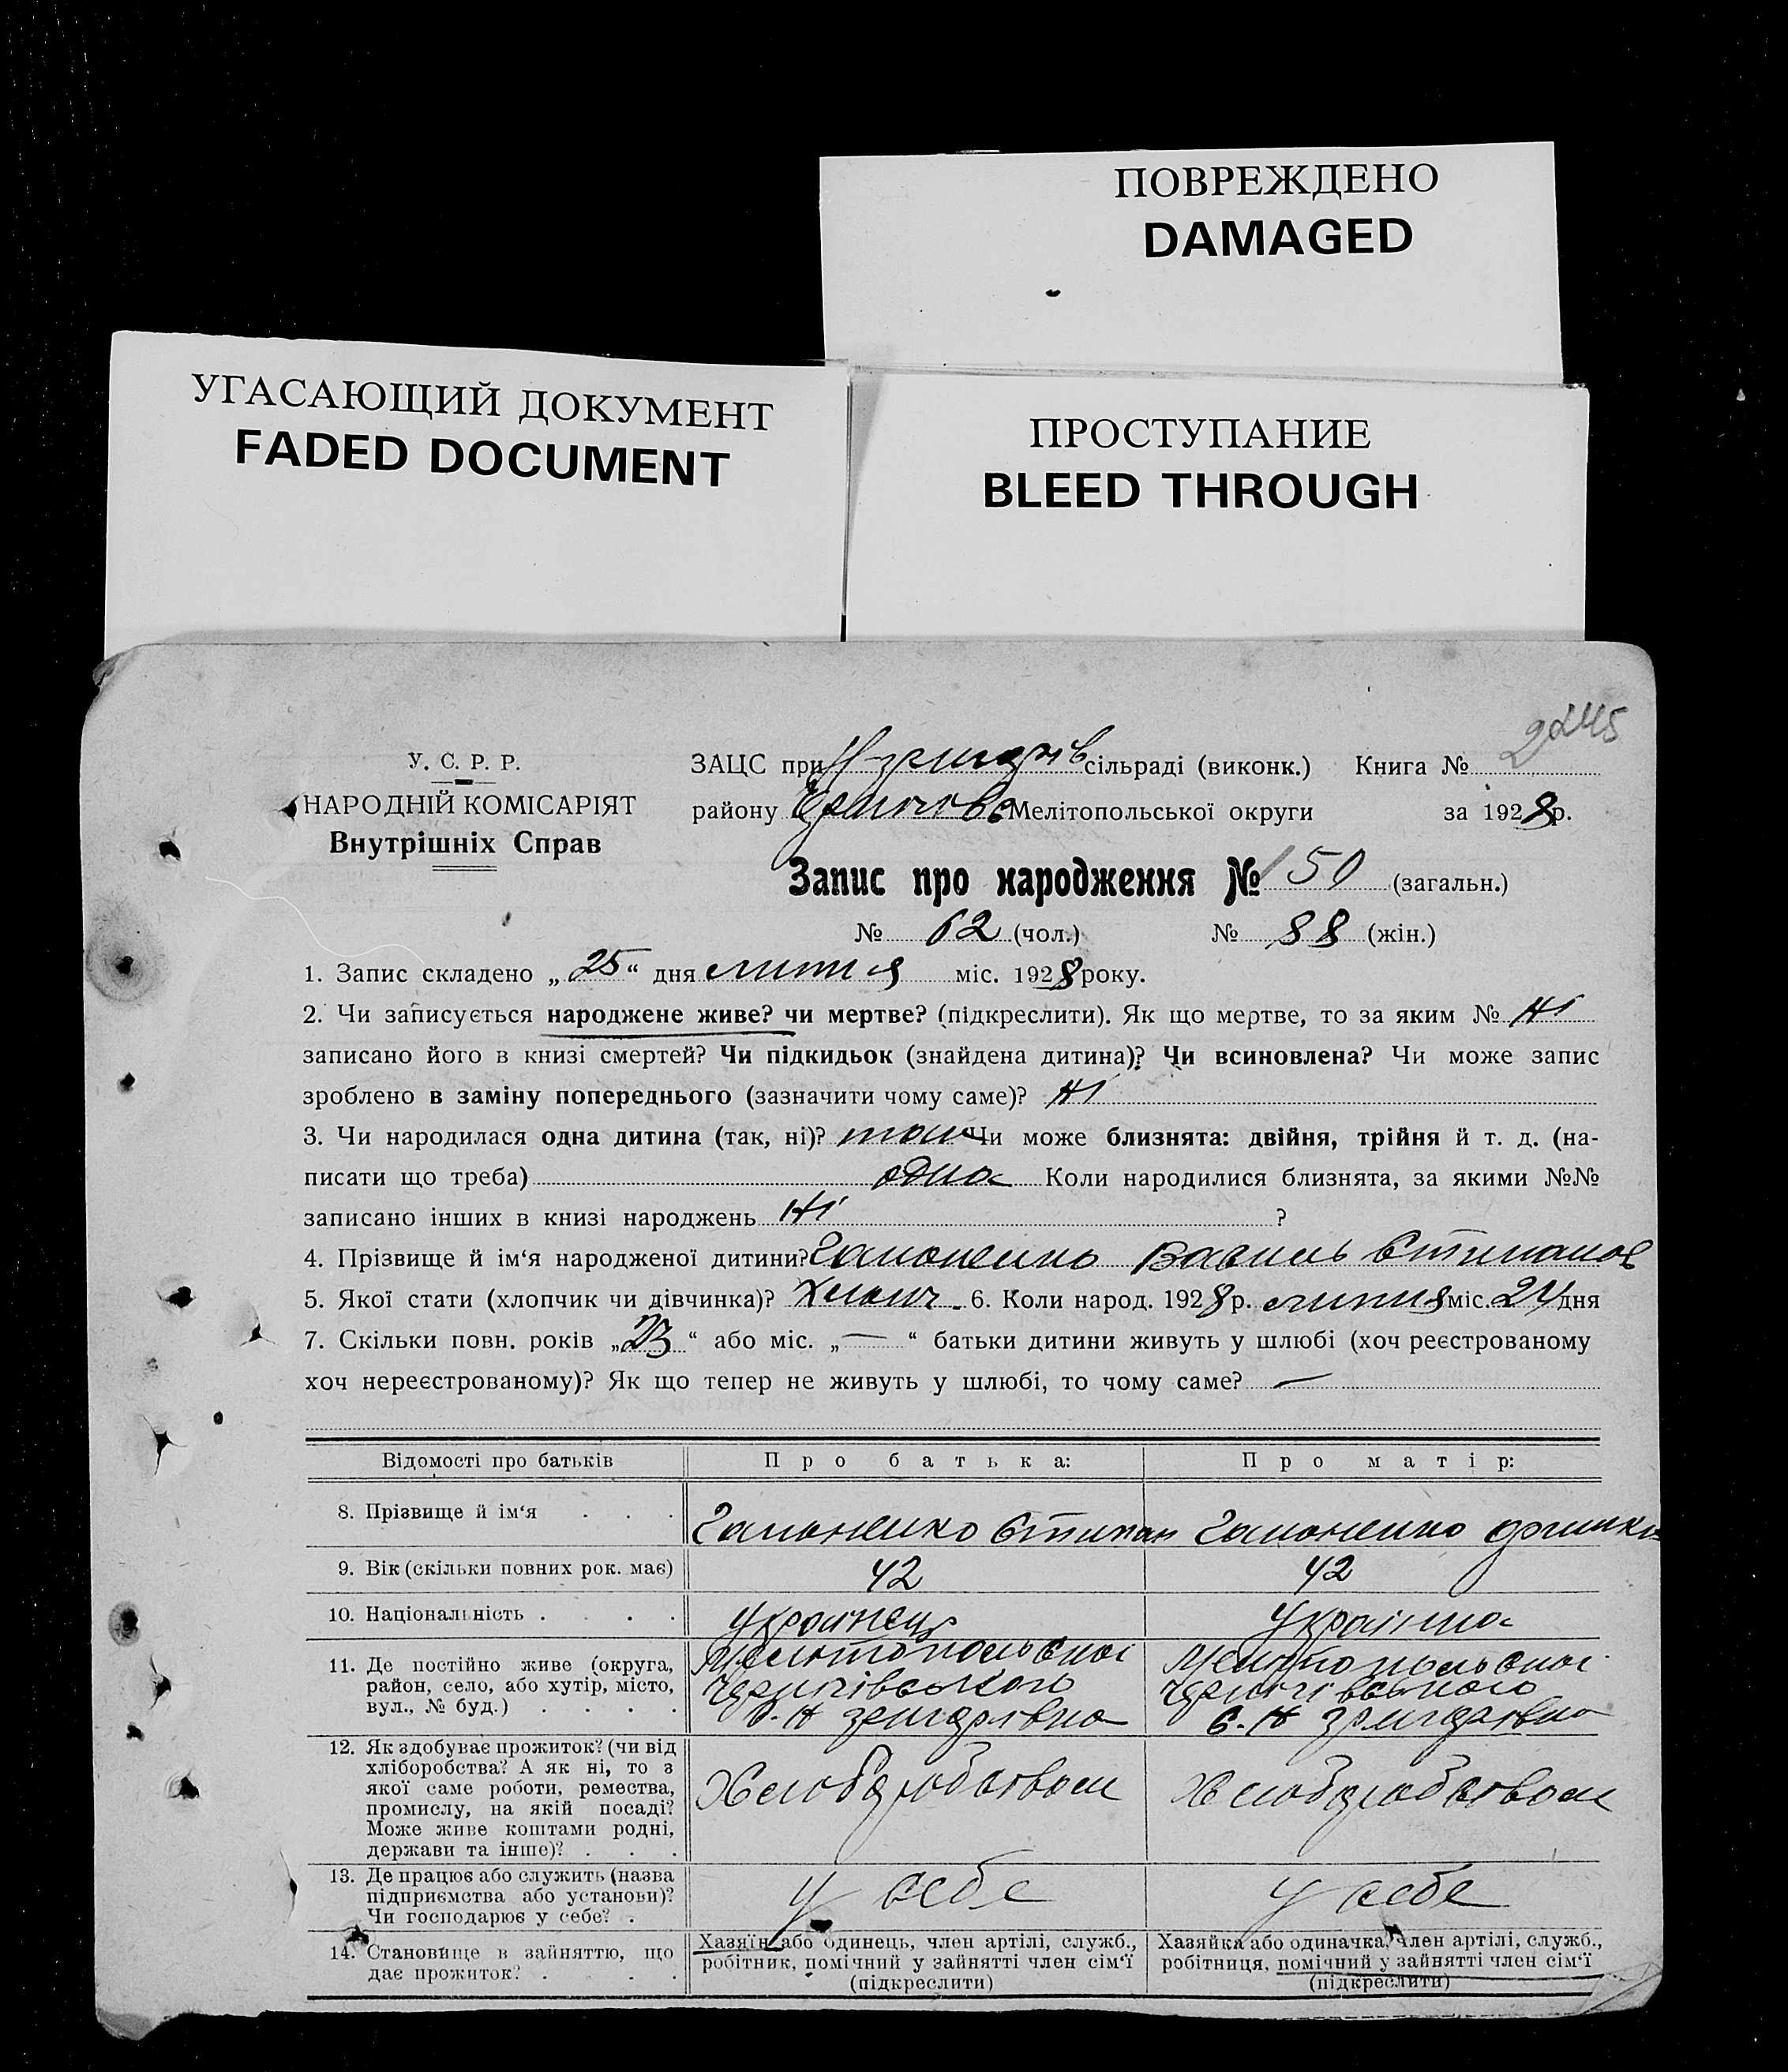 ПОВРЕЖДЕНО
DAMAGED
УГАСАЮЩИЙ ДОКУМЕНТ
FADED DOCUMENT
ПРОСТУПАНИЕ
BLEED THROUGH
2245
У. С. Р. Р.
НАРОДНІЙ КОМІСАРІЯТ
Внутрішніх Справ
ЗАЦС при сільраді (виконк.) Книга №
району Мелітопольської округи за 1928 р.
Запис про народження № 150 (загальн.)
№ 62 (чол.) № 88 (жін.)
1. Запис складено „ 25 “ дня липня міс. 1928 року.
2. Чи записується народжене живе? чи мертве? (підкреслити). Як що мертве, то за яким № Ні
записано його в книзі смертей? Чи підкидьок (знайдена дитина)? Чи всиновлена? Чи може запис
зроблено в заміну попереднього (зазначити чому саме)? Ні
3. Чи народилася одна дитина (так, ні)? так Чи може близнята: двійня, трійня й т. д. (на-
писати що треба) одна Коли народилися близнята, за якими №№
записано інших в книзі народжень Ні ?
4. Прізвище й ім'я народженої дитини? Гапоненко Василь Стипанов
5. Якої стати (хлопчик чи дівчинка)? Хлопч. 6. Коли народ. 1928 р. липня міс. 24 дня
7. Скільки повн. років „ 23 “ або міс. „ — “ батьки дитини живуть у шлюбі (хоч реєстрованому
хоч нереєстрованому)? Як що тепер не живуть у шлюбі, то чому саме? —
Відомості про батьків Про батька: Про матір:
8. Прізвище й ім‘я Гапоненко Стипан Гапоненко
9. Вік (скільки повних рок. має) 42 42
10. Національність Українець Українка
11. Де постійно живе (округа,
район, село, або хутір, місто,
вул., № буд.)
Мелітопольської
Чернігівського
Мелітопольської
Чернігівського
12. Як здобуває прожиток? (чи від
хліборобства? А як ні, то з
якої саме роботи, ремества,
промислу, на якій посаді?
Може живе коштами родні,
держави та інше)?
Хлобаробством
Хлобаробством
13. Де працює або служить (назва
підприємства або установи)?
Чи господарює у себе?
У себе
У себе
14. Становище в зайняттю, що
дає прожиток?
Хазяїн або одинець, член артілі, служб.,
робітник, помічний у зайнятті член сім‘ї
(підкреслити)
Хазяйка або одиначка, член артілі, служб.,
робітниця, помічний у зайнятті член сім‘ї
(підкреслити)